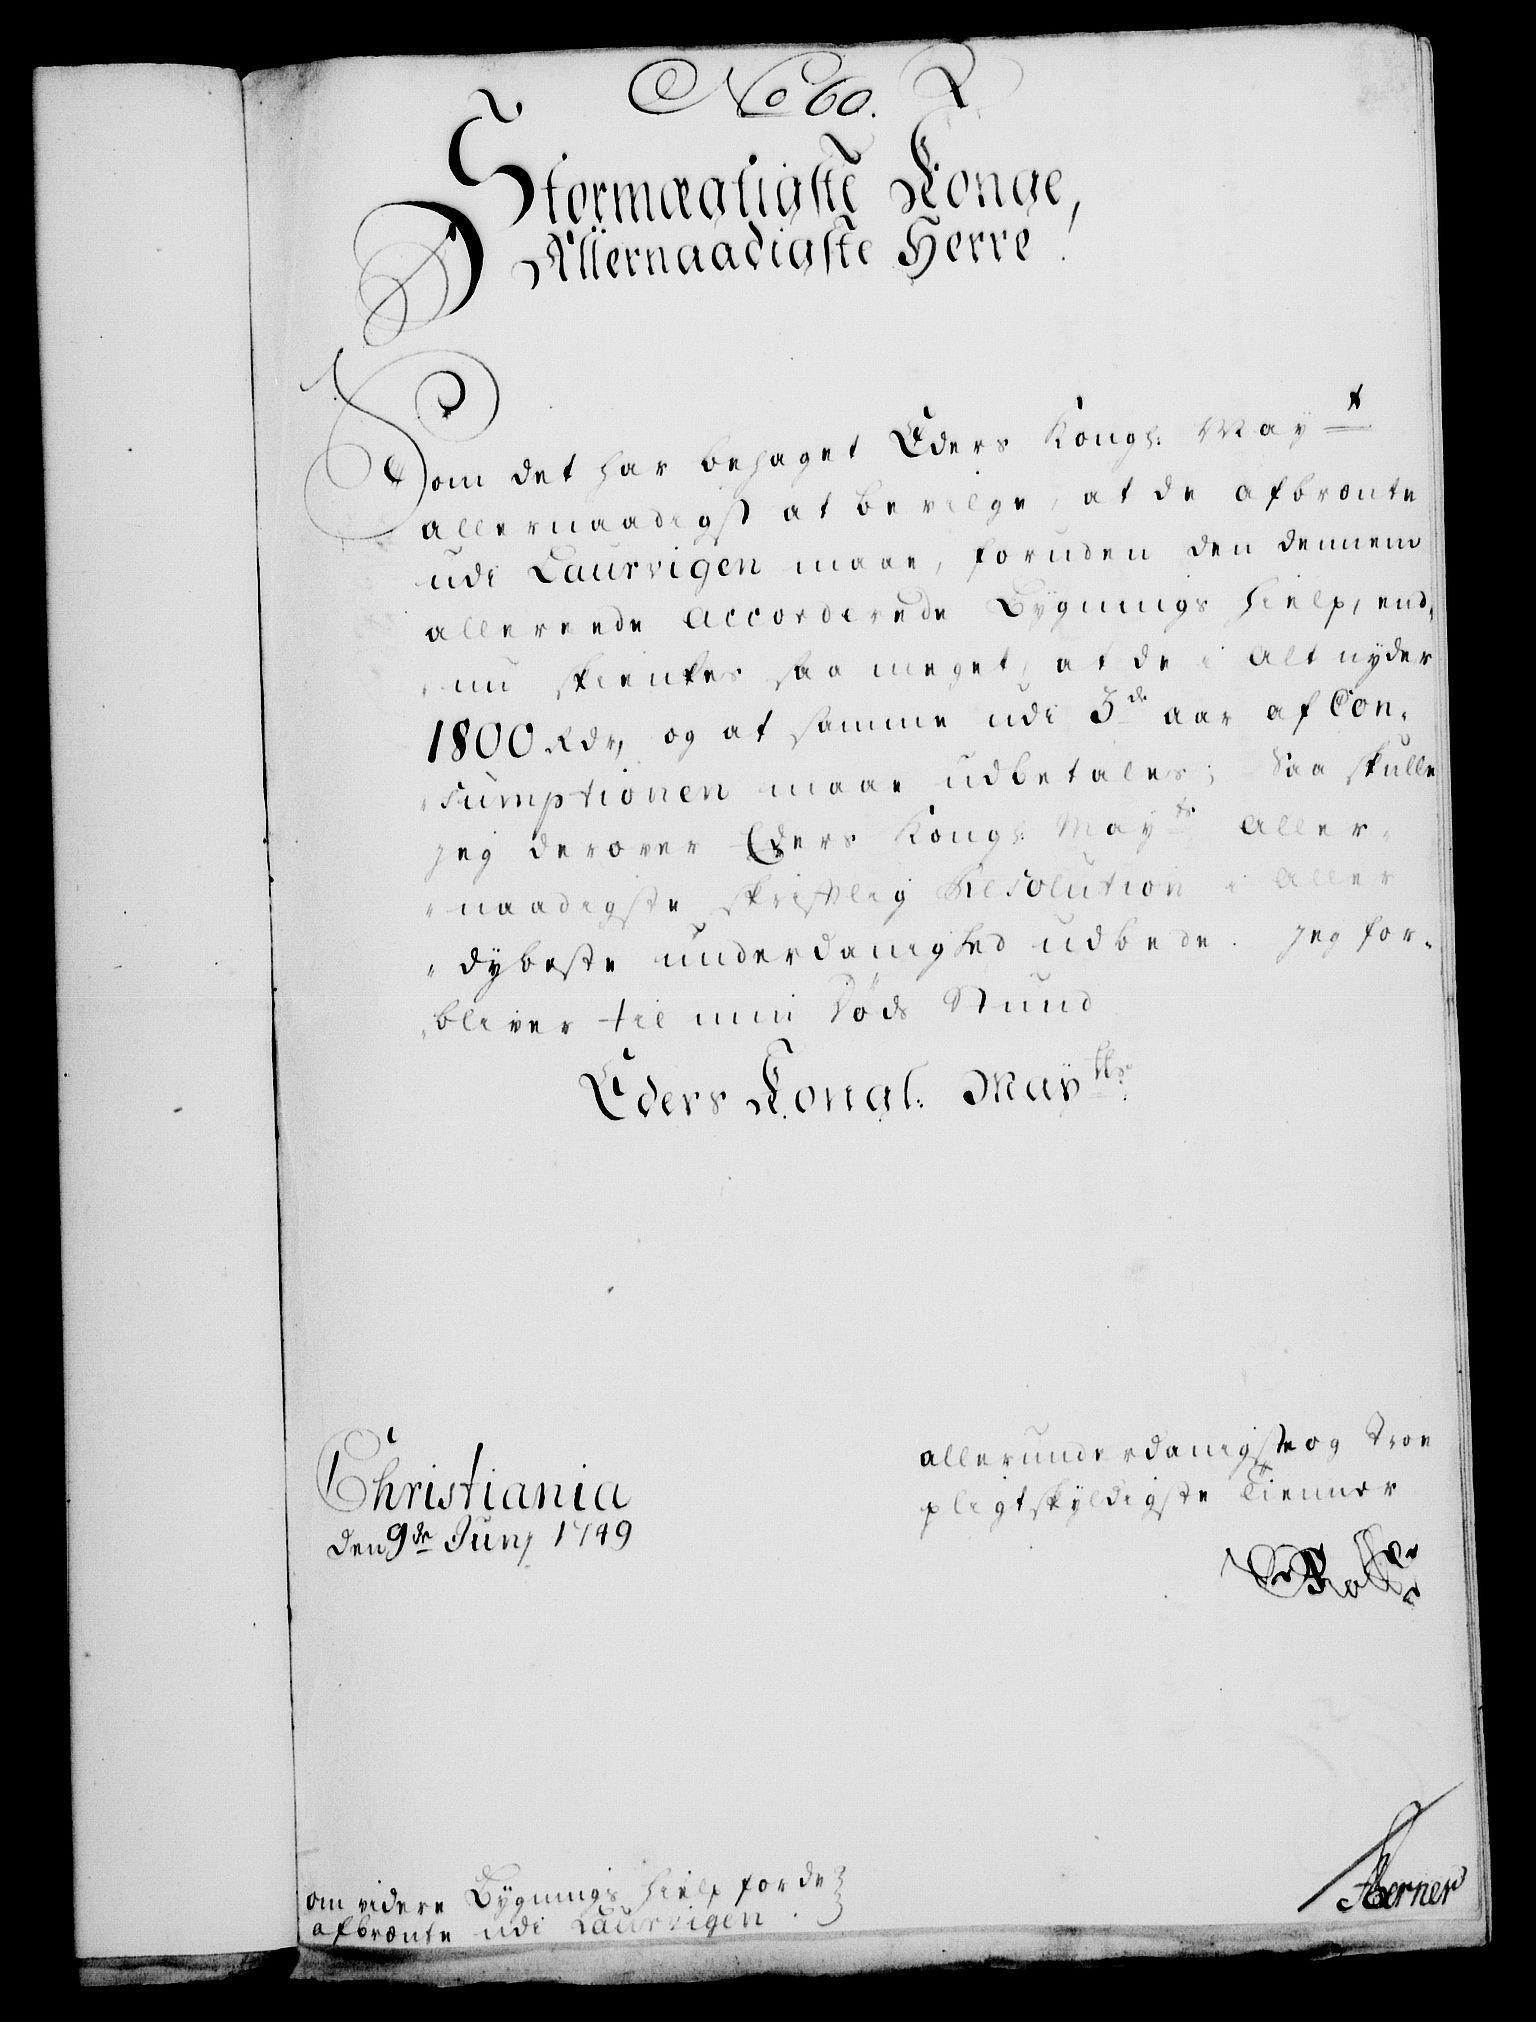 No 60.
Stormægtigste Konge,
Allernaadigste Herre!
Som det har behaget Eders Kongl: May:t
allernaadigst at bevilge, at de afbrænte
udi Laurvigen maae, foruden den dennem
allereede accorderede Bygnings hielp, end,
nu skienkes saa meget, at de i alt nyder
1800 Rdr, og at samme udi 3de aar af Con,
sumptionen maae udbetales; Saa skulle
jeg derover Eders Kongl: Mayts aller,
naadigste skriftlig Resolution i aller
dybeste underdanighed udbede. Jeg for,
bliver til min Døds Stund
Eders Kongl: Mayts.
Christiania
den 9de Junj 1749
allerunderdanigste og troe
pligtskyldigste Tienner
om videre Bygnings hielp for de
afbrænte udi Laurvigen.